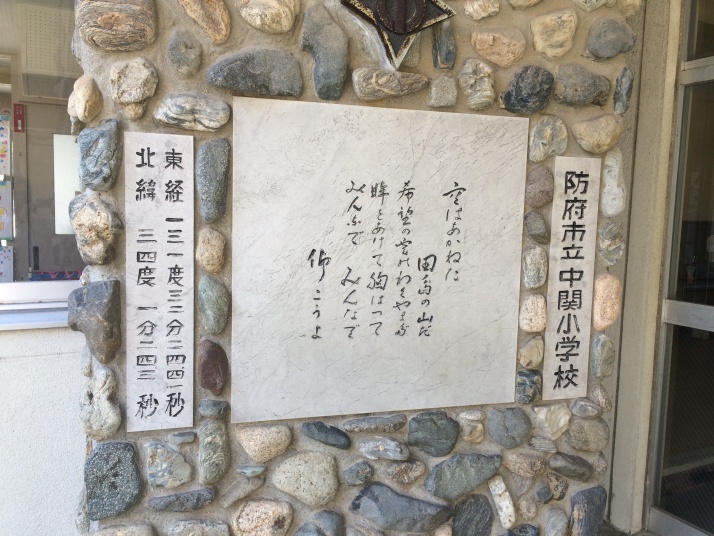 防府市立中関小学校
空はあかねに
田島の山だ
希望の雲が
眸をあげて胸はって
みんなで みんなで
仰こうよ
東経 一三一度三二分二四四一秒
北緯 三四度 一分二四三秒